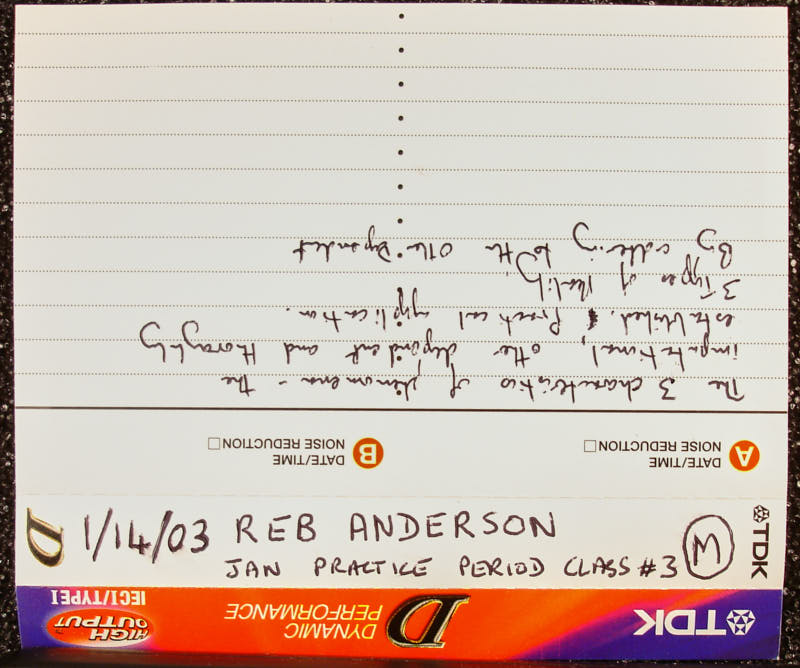 The 3 characteristics of phenomena - the
imputational, other dependent and thoroughly
established. & Practical application.
3 Types of Reality
By adhering to the Other-Dependent
A DATE/TIME
NOISE REDUCTION
B DATE/TIME
NOISE REDUCTION
D
1/14/03 REB ANDERSON
JAN PRACTICE PERIOD CLASS #3
M
TDK
TDK
D DYNAMIC
PERFORMANCE
HIGH
OUTPUT™
IECI/TYPEI